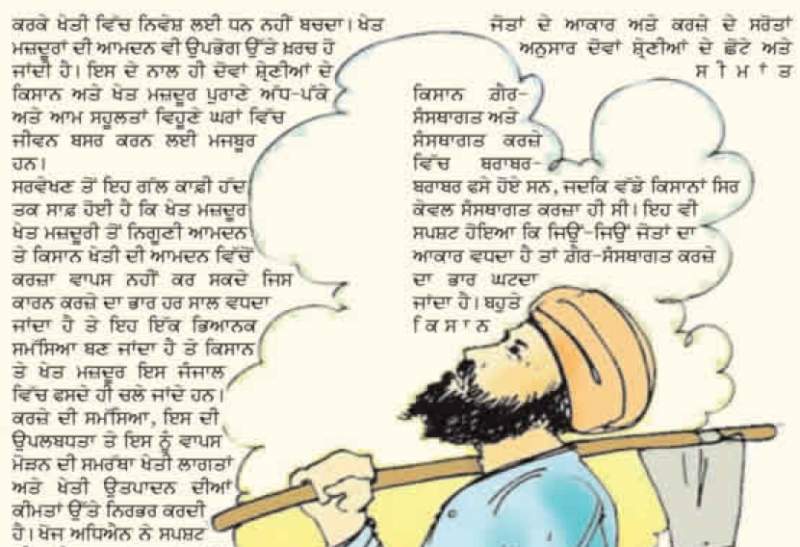 ਕਰਕੇ ਖੇਤੀ ਵਿੱਚ ਨਿਵੇਸ਼ ਲਈ ਧਨ ਨਹੀਂ ਬਚਦਾ। ਖੇਤ
ਮਜ਼ਦੂਰਾਂ ਦੀ ਆਮਦਨ ਵੀ ਉਪਭੋਗ ਉੱਤੇ ਖ਼ਰਚ ਹੋ
ਜਾਂਦੀ ਹੈ। ਇਸ ਦੇ ਨਾਲ ਹੀ ਦੋਵਾਂ ਸ਼੍ਰੇਣੀਆਂ ਦੇ
ਕਿਸਾਨ ਅਤੇ ਖੇਤ ਮਜ਼ਦੂਰ ਪੁਰਾਣੇ ਅੱਧ-ਪੱਕੇ
ਅਤੇ ਆਮ ਸਹੂਲਤਾਂ ਵਿਹੂਣੇ ਘਰਾਂ ਵਿੱਚ
ਜੀਵਨ ਬਸਰ ਕਰਨ ਲਈ ਮਜਬੂਰ
ਹਨ।
ਸਰਵੇਖਣ ਤੋਂ ਇਹ ਗੱਲ ਕਾਫ਼ੀ ਹੱਦ
ਤਕ ਸਾਫ਼ ਹੋਈ ਹੈ ਕਿ ਖੇਤ ਮਜ਼ਦੂਰ
ਖੇਤ ਮਜ਼ਦੂਰੀ ਤੋਂ ਨਿਗੂਣੀ ਆਮਦਨ
ਤੇ ਕਿਸਾਨ ਖੇਤੀ ਦੀ ਆਮਦਨ ਵਿੱਚੋਂ
ਕਰਜ਼ਾ ਵਾਪਸ ਨਹੀਂ ਕਰ ਸਕਦੇ ਜਿਸ
ਕਾਰਨ ਕਰਜ਼ੇ ਦਾ ਭਾਰ ਹਰ ਸਾਲ ਵਧਦਾ
ਜਾਂਦਾ ਹੈ ਤੇ ਇਹ ਇੱਕ ਭਿਆਨਕ
ਸਮੱਸਿਆ ਬਣ ਜਾਂਦਾ ਹੈ ਤੇ ਕਿਸਾਨ
ਤੇ ਖੇਤ ਮਜ਼ਦੂਰ ਇਸ ਜੰਜਾਲ
ਵਿੱਚ ਫਸਦੇ ਹੀ ਚਲੇ ਜਾਂਦੇ ਹਨ।
ਕਰਜ਼ੇ ਦੀ ਸਮੱਸਿਆ, ਇਸ ਦੀ
ਉਪਲਬਧਤਾ ਤੇ ਇਸ ਨੂੰ ਵਾਪਸ
ਮੋੜਨ ਦੀ ਸਮਰੱਥਾ ਖੇਤੀ ਲਾਗਤਾਂ
ਅਤੇ ਖੇਤੀ ਉਤਪਾਦਨ ਦੀਆਂ
ਕੀਮਤਾਂ ਉੱਤੇ ਨਿਰਭਰ ਕਰਦੀ
ਹੈ। ਖੋਜ ਅਧਿਐਨ ਨੇ ਸਪਸ਼ਟ
ਜੋਤਾਂ ਦੇ ਆਕਾਰ ਅਤੇ ਕਰਜ਼ੇ ਦੇ ਸਰੋਤਾਂ
ਅਨੁਸਾਰ ਦੋਵਾਂ ਸ਼੍ਰੇਣੀਆਂ ਦੇ ਛੋਟੇ ਅਤੇ
ਸੀਮਾਂਤ
ਕਿਸਾਨ ਗ਼ੈਰ-
ਸੰਸਥਾਗਤ ਅਤੇ
ਸੰਸਥਾਗਤ ਕਰਜ਼ੇ
ਵਿੱਚ ਬਰਾਬਰ-
ਬਰਾਬਰ ਫਸੇ ਹੋਏ ਸਨ, ਜਦਕਿ ਵੱਡੇ ਕਿਸਾਨਾਂ ਸਿਰ
ਕੇਵਲ ਸੰਸਥਾਗਤ ਕਰਜ਼ਾ ਹੀ ਸੀ। ਇਹ ਵੀ
ਸਪਸ਼ਟ ਹੋਇਆ ਕਿ ਜਿਉਂ-ਜਿਉਂ ਜੋਤਾਂ ਦਾ
ਆਕਾਰ ਵਧਦਾ ਹੈ ਤਾਂ ਗ਼ੈਰ-ਸੰਸਥਾਗਤ ਕਰਜ਼ੇ
ਦਾ ਭਾਰ ਘਟਦਾ
ਜਾਂਦਾ ਹੈ। ਬਹੁਤੇ
ਕਿਸਾਨ